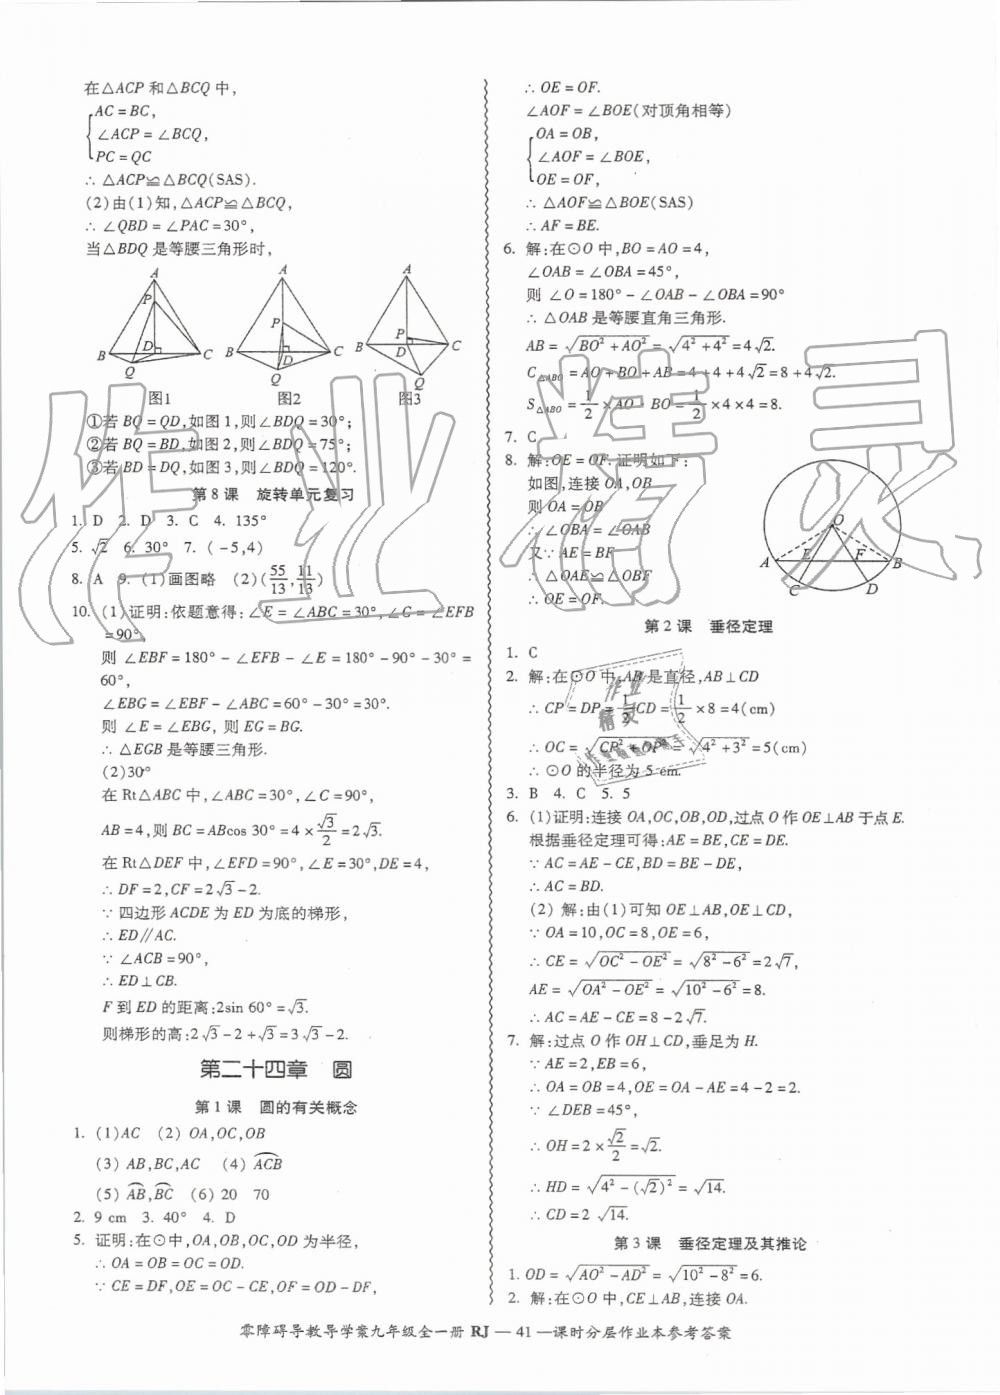 在△ACP 和△BCQ 中，
AC = BC，
∠ACP = ∠BCQ，
PC = QC
∴ △ACP≌△BCQ(SAS).
(2)由(1)知，△ACP≌△BCQ，
∴ ∠QBD = ∠PAC = 30°，
当△BDQ 是等腰三角形时，
A P B D C Q
A P B D C Q
A P B D C Q
图1 图2 图3
①若 BQ = QD，如图 1，则∠BDQ = 30°；
②若 BQ = BD，如图 2，则∠BDQ = 75°；
③若 BD = DQ，如图 3，则∠BDQ = 120°.
第 8 课 旋转单元复习
1. D 2. D 3. C 4. 135°
5. √2 6. 30° 7. (－5,4)
8. A 9. (1)画图略 (2)(55/13, 11/13)
10. (1)证明：依题意得：∠E = ∠ABC = 30°，∠C = ∠EFB
= 90°，
则 ∠EBF = 180° － ∠EFB － ∠E = 180° － 90° － 30° =
60°，
∠EBG = ∠EBF － ∠ABC = 60° － 30° = 30°.
则 ∠E = ∠EBG，则 EG = BG.
∴ △EGB 是等腰三角形.
(2)30°
在 Rt△ABC 中，∠ABC = 30°，∠C = 90°，
AB = 4，则 BC = ABcos 30° = 4 × √3/2 = 2√3.
在 Rt△DEF 中，∠EFD = 90°，∠E = 30°，DE = 4，
∴ DF = 2，CF = 2√3 － 2.
∵ 四边形 ACDE 为 ED 为底的梯形，
∴ ED∥AC.
∵ ∠ACB = 90°，
∴ ED⊥CB.
F 到 ED 的距离：2sin 60° = √3.
则梯形的高：2√3 － 2 + √3 = 3√3 － 2.
第二十四章 圆
第 1 课 圆的有关概念
1. (1)AC (2) OA，OC，OB
(3) AB，BC，AC (4) ACB⌒
(5) AB⌒，BC⌒ (6) 20 70
2. 9 cm 3. 40° 4. D
5. 证明：在⊙中，OA，OB，OC，OD 为半径，
∴ OA = OB = OC = OD.
∵ CE = DF，OE = OC － CE，OF = OD － DF，
∴ OE = OF.
∠AOF = ∠BOE(对顶角相等)
OA = OB，
∠AOF = ∠BOE，
OE = OF，
∴ △AOF≌△BOE(SAS)
∴ AF = BE.
6. 解：在⊙O 中，BO = AO = 4，
∠OAB = ∠OBA = 45°，
则 ∠O = 180° － ∠OAB － ∠OBA = 90°
∴ △OAB 是等腰直角三角形.
AB = √(BO² + AO²) = √(4² + 4²) = 4√2.
C△ABO = AO + BO + AB = 4 + 4 + 4√2 = 8 + 4√2.
S△ABO = 1/2 × AO · BO = 1/2 × 4 × 4 = 8.
7. C
8. 解：OE = OF. 证明如下：
如图，连接 OA，OB
则 OA = OB
∴ ∠OBA = ∠OAB
又∵ AE = BF
∴ △OAE≌△OBF
∴ OE = OF.
O A E F B C D
第 2 课 垂径定理
1. C
2. 解：在⊙O 中，AB 是直径，AB⊥CD
∴ CP = DP = 1/2 CD = 1/2 × 8 = 4(cm)
∴ OC = √(CP² + OP²) = √(4² + 3²) = 5(cm)
∴ ⊙O 的半径为 5 cm.
3. B 4. C 5. 5
6. (1)证明：连接 OA，OC，OB，OD，过点 O 作 OE⊥AB 于点 E.
根据垂径定理可得：AE = BE，CE = DE.
∵ AC = AE － CE，BD = BE － DE，
∴ AC = BD.
(2) 解：由(1)可知 OE⊥AB，OE⊥CD，
∵ OA = 10，OC = 8，OE = 6，
∴ CE = √(OC² － OE²) = √(8² － 6²) = 2√7，
AE = √(OA² － OE²) = √(10² － 6²) = 8.
∴ AC = AE － CE = 8 － 2√7.
7. 解：过点 O 作 OH⊥CD，垂足为 H.
∵ AE = 2，EB = 6，
∴ OA = OB = 4，OE = OA － AE = 4 － 2 = 2.
∵ ∠DEB = 45°，
∴ OH = 2 × √2/2 = √2.
∴ HD = √(4² － (√2)²) = √14.
∴ CD = 2√14.
第 3 课 垂径定理及其推论
1. OD = √(AO² － AD²) = √(10² － 8²) = 6.
2. 解：在⊙O 中，CE⊥AB，连接 OA.
零障碍导教导学案九年级全一册 RJ — 41 —课时分层作业本参考答案
作业精灵
作业精灵